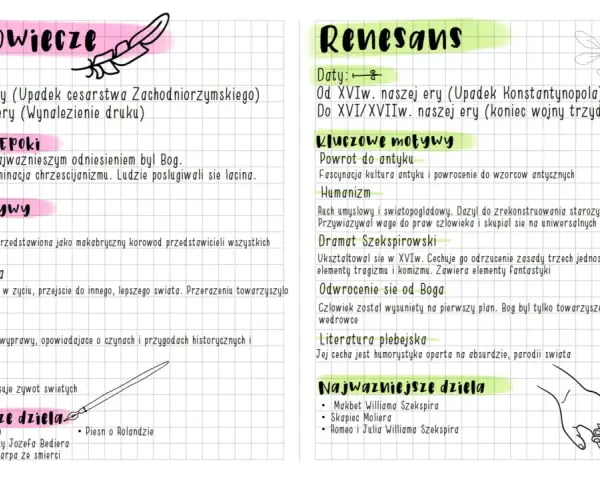 owiecze
y (Upadek cesarstwa Zachodniorzymskiego)
ery (Wynalezienie druku)
Epoki
ajwazniejszym odniesieniem byl Bog.
minacja chrzescijanizmu. Ludzie poslugiwali sie lacina.
ywy
rzedstawiona jako makabryczny korowod przedstawicieli wszystkich
a
w zyciu, przejscie do innego, lepszego swiata. Przerazeniu towarzyszylo
wyprawy, opowiadajace o czynach i przygodach historycznych i
suje zywot swietych
ze dziela
• Piesn o Rolandzie
y Jozefa Bediera
arpa ze smierci
Renesans
Daty:
Od XVIw. naszej ery (Upadek Konstantynopola
Do XVI/XVIIw. naszej ery (koniec wojny trzyd
Kluczowe motywy
Powrot do antyku
Fascynacja kultura antyku i powrocenie do wzorcow antycznych
Humanizm
Ruch umyslowy i swiatopogladowy. Dazyl do zrekonstruowania starozy
Przywiazywal wage do praw czlowieka i skupial sie na uniwersalnych
Dramat Szekspirowski
Uksztaltowal sie w XVIw. Cechuje go odrzucenie zasady trzech jednos
elementy tragizmu i komizmu. Zawiera elementy fantastyki
Odwrocenie sie od Boga
Czlowiek zostal wysuniety na pierwszy plan. Bog byl tylko towarzysze
wedrowce
Literatura plebejska
Jej cecha jest humorystyka oparta na absurdzie, parodii swiata
Najwazniejsze dziela
• Makbet Williama Szekspira
• Skapiec Moliera
• Romeo i Julia Williama Szekspira